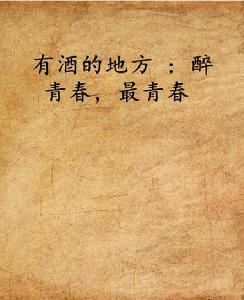 有酒的地方 ：醉
青春，最青春